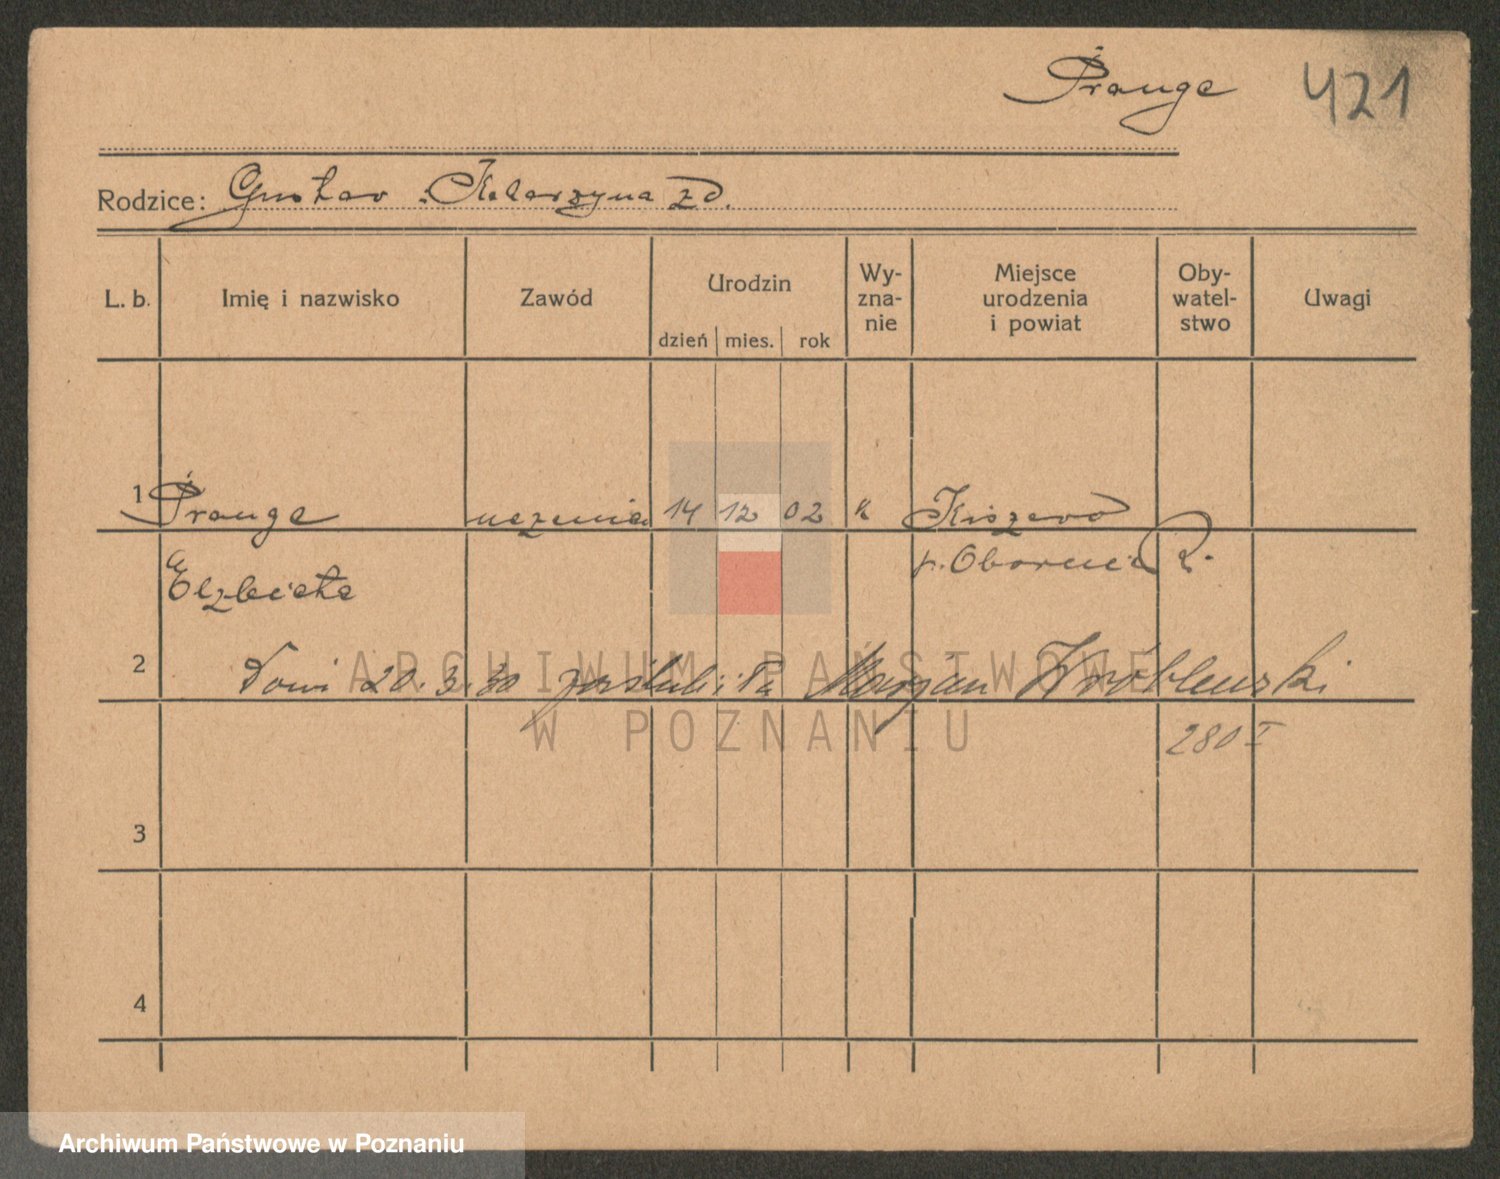 Prange 421
Rodzice: Gustav i Katarzyna zd.
L. b. Imię i nazwisko Zawód Urodzin dzień mies. rok Wy-zna-nie Miejsce urodzenia i powiat Oby-watel-stwo Uwagi
1 Prange uczenica 14 12 02 k Kiszewo
Elzbieta p. Oborniki
2 20.3.30 poślubiła Marjan Wróblewski
280 I
3
4
ARCHIWUM PAŃSTWOWE
W POZNANIU
Archiwum Państwowe w Poznaniu